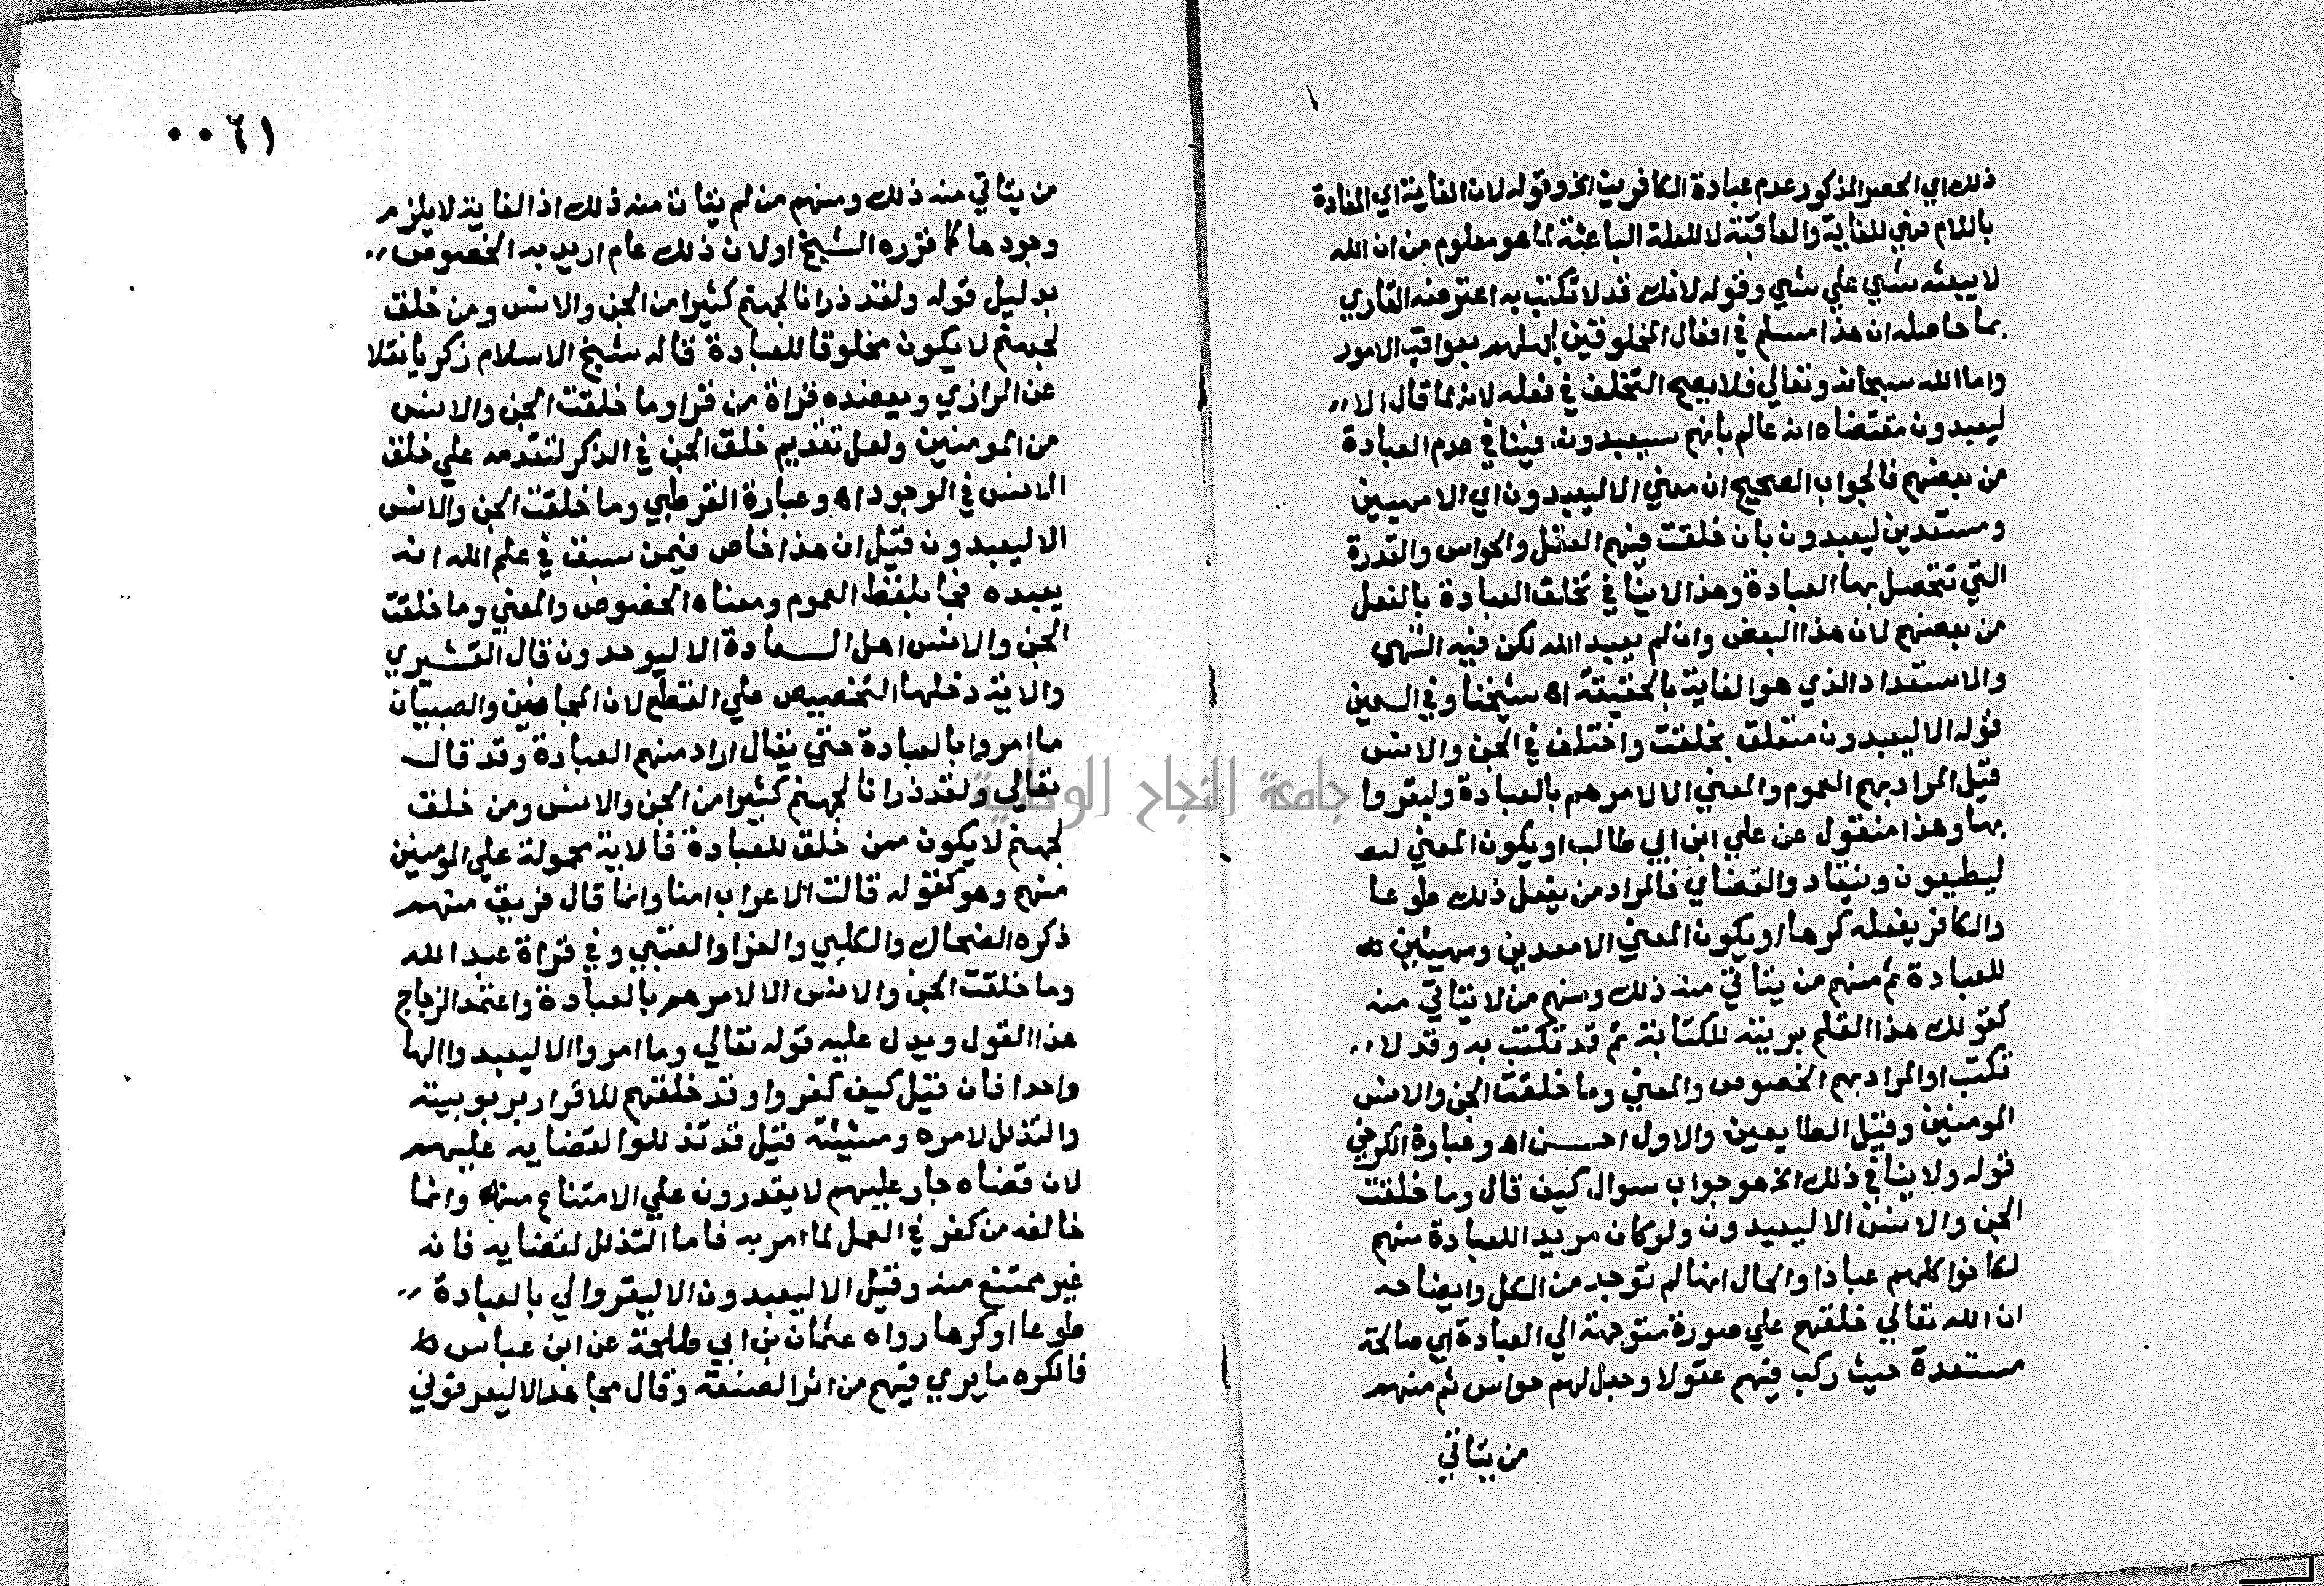 ذلك اي الحصر المذكور عدم عبادة الكافرين الخ وقوله لان الغاية اي المفادة
باللام فهي للغاية والعاقبة لا للعلة الباعثة لما هو معلوم من ان الله
لا يبعثه شي علي شي وقوله لانك قد لا تكتب به اعترضه القاري
بما حاصله ان هذا مسلم في افعال المخلوقين لجهلهم بعواقب الامور
واما الله سبحانه وتعالي فلا يصح التخلف في فعله لانه لما قال الا
ليعبدون مقتضاه انه عالم بانهم سيعبدون فينافي عدم العبادة
من بعضهم فالجواب الصحيح ان معني الا ليعبدون اي الا مهيين
ومستعدين ليعبدون بان خلقت فيهم العقل والحواس والقدرة
التي تتحصل بها العبادة وهذا لا ينافي تخلف العبادة بالفعل
من بعضهم لان هذا البعض وان لم يعبد الله لكن فيه التهي
والاستعداد الذي هو الغاية بالحقيقة اه شيخنا وفي السمين
قوله الا ليعبدون متعلق بخلقت واختلف في الجن والانس
قيل المراد بهم العموم والمعني الا لامرهم بالعبادة وليقروا
بها وهذا منقول عن علي ابن ابي طالب او يكون المعني
ليطيعون وينقادوا لقضاي فالمراد من يفعل ذلك طوعا
والكافر يفعله كرها او يكون المعني الا معدين ومهيئين
للعبادة ثم منهم من يتاتي منه ذلك ومنهم من لا يتاتي منه
كقولك هذا القلم بريته للكتابة ثم قد تكتب به وقد لا
تكتب او المراد بهم الخصوص والمعني وما خلقت الجن والانس
المومنين وقيل الطايعين والاول احسن اه وعبارة الكرخي
قوله ولا ينافي ذلك الخ هو جواب سوال كيف قال وما خلقت
الجن والانس الا ليعبدون ولو كان مريد اللعبادة منهم
لكانوا كلهم عبادا والحال انها لم توجد من الكل وايضاحه
ان الله تعالي خلقهم علي صورة متوجهة الي العبادة اي صالحة
مستعدة حيث ركب فيهم عقولا وجعل لهم حواس ثم منهم
من يتاتي
٠٠٦١
من يتاتي منه ذلك ومنهم من لم يتات منه ذلك اذ الغاية لا يلزم
وجودها كما قرره الشيخ او لان ذلك عام اريد به الخصوص
بدليل قوله ولقد ذرانا لجهنم كثيرا من الجن والانس ومن خلق
لجهنم لا يكون مخلوقا للعبادة قاله شيخ الاسلام زكريا نقلا
عن الرازي ويعضده قراة من قرا وما خلقت الجن والانس
من المومنين ولعل تقديم خلق الجن في الذكر لتقدمه علي خلق
الانس في الوجود اه وعبارة القرطبي وما خلقت الجن والانس
الا ليعبدون قيل ان هذا خاص فيمن سبق في علم الله انه
يعبده فجا بلفظ العموم ومعناه الخصوص والمعني وما خلقت
الجن والانس اهل السعادة الا ليوحدون قال القشيري
والاية دخلها التخصيص علي القطع لان المجانين والصبيان
ما امروا بالعبادة حتي يقال اراد منهم العبادة وقد قال
تعالي ولقد ذرانا لجهنم كثيرا من الجن والانس ومن خلق
لجهنم لا يكون ممن خلق للعبادة فالاية محمولة علي المومنين
منهم وهو كقوله قالت الاعراب امنا وانما قال فريق منهم
ذكره الضحاك والكلبي والفرا والقتبي وفي قراة عبد الله
وما خلقت الجن والانس الا لامرهم بالعبادة واعتمد الزجاج
هذا القول ويدل عليه قوله تعالي وما امروا الا ليعبدوا الها
واحدا فان قيل كيف كفروا وقد خلقهم للاقرار بربوبيته
والتذلل لامره ومشيئته قيل قد تذللوا لقضايه عليهم
لان قضاه جار عليهم لا يقدرون علي الامتناع منه وانما
خالفه من كفر في العمل لما امر به فاما التذلل لقضايه فانه
غير ممتنع منه وقيل الا ليعبدون الا ليقروا لي بالعبادة
طوعا او كرها رواه عثمان بن ابي طلحة عن ابن عباس
فالكره ما يري فيهم من اثر الصنعة وقال مجاهد الا ليعرفوني
جامعة النجاح الوطنية